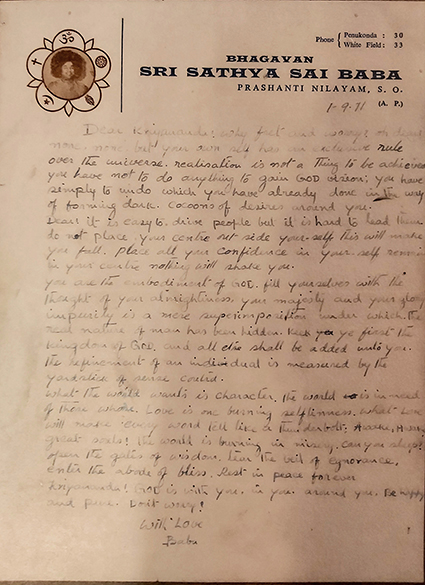 Phone { Penukonda : 30
White Field : 33
BHAGAVAN
SRI SATHYA SAI BABA
PRASHANTI NILAYAM, S. O.
1-9-71 (A. P.)
Dear why fret and worry?
none, none, but your own self has an exclusive rule
over the universe. realisation is not a thing to be achieved
you have not to do anything to gain GOD vision; you have
simply to undo which you have already done in the way
of forming dark cocoons of desires around you.
Dear! it is easy to drive people but it is hard to lead them
do not place your centre out side your self this will make
you fall. place all your confidence in your self remain
in your centre nothing will shake you.
you are the embodiment of GOD. fill yourselves with the
thought of your almightiness, your majesty and your glory
impurity is a mere superimposition under which the
real nature of man has been hidden. Seek ye first the
Kingdom of GOD, and all else shall be added unto you.
the refinement of an individual is measured by the
yardstick of sense control.
what the world wants is character. the world is in need
of those whose Love is one burning selflessness. what Love
will make every word tell like a thunderbolt. Awake, Awake
great souls! the world is burning in misery. can you sleep?
open the gates of wisdom. tear the veil of egnorance.
enter the abode of bliss. Rest in peace forever
GOD is with you, in you, around you. Be happy
and pure. Don't worry!
With Love
Baba